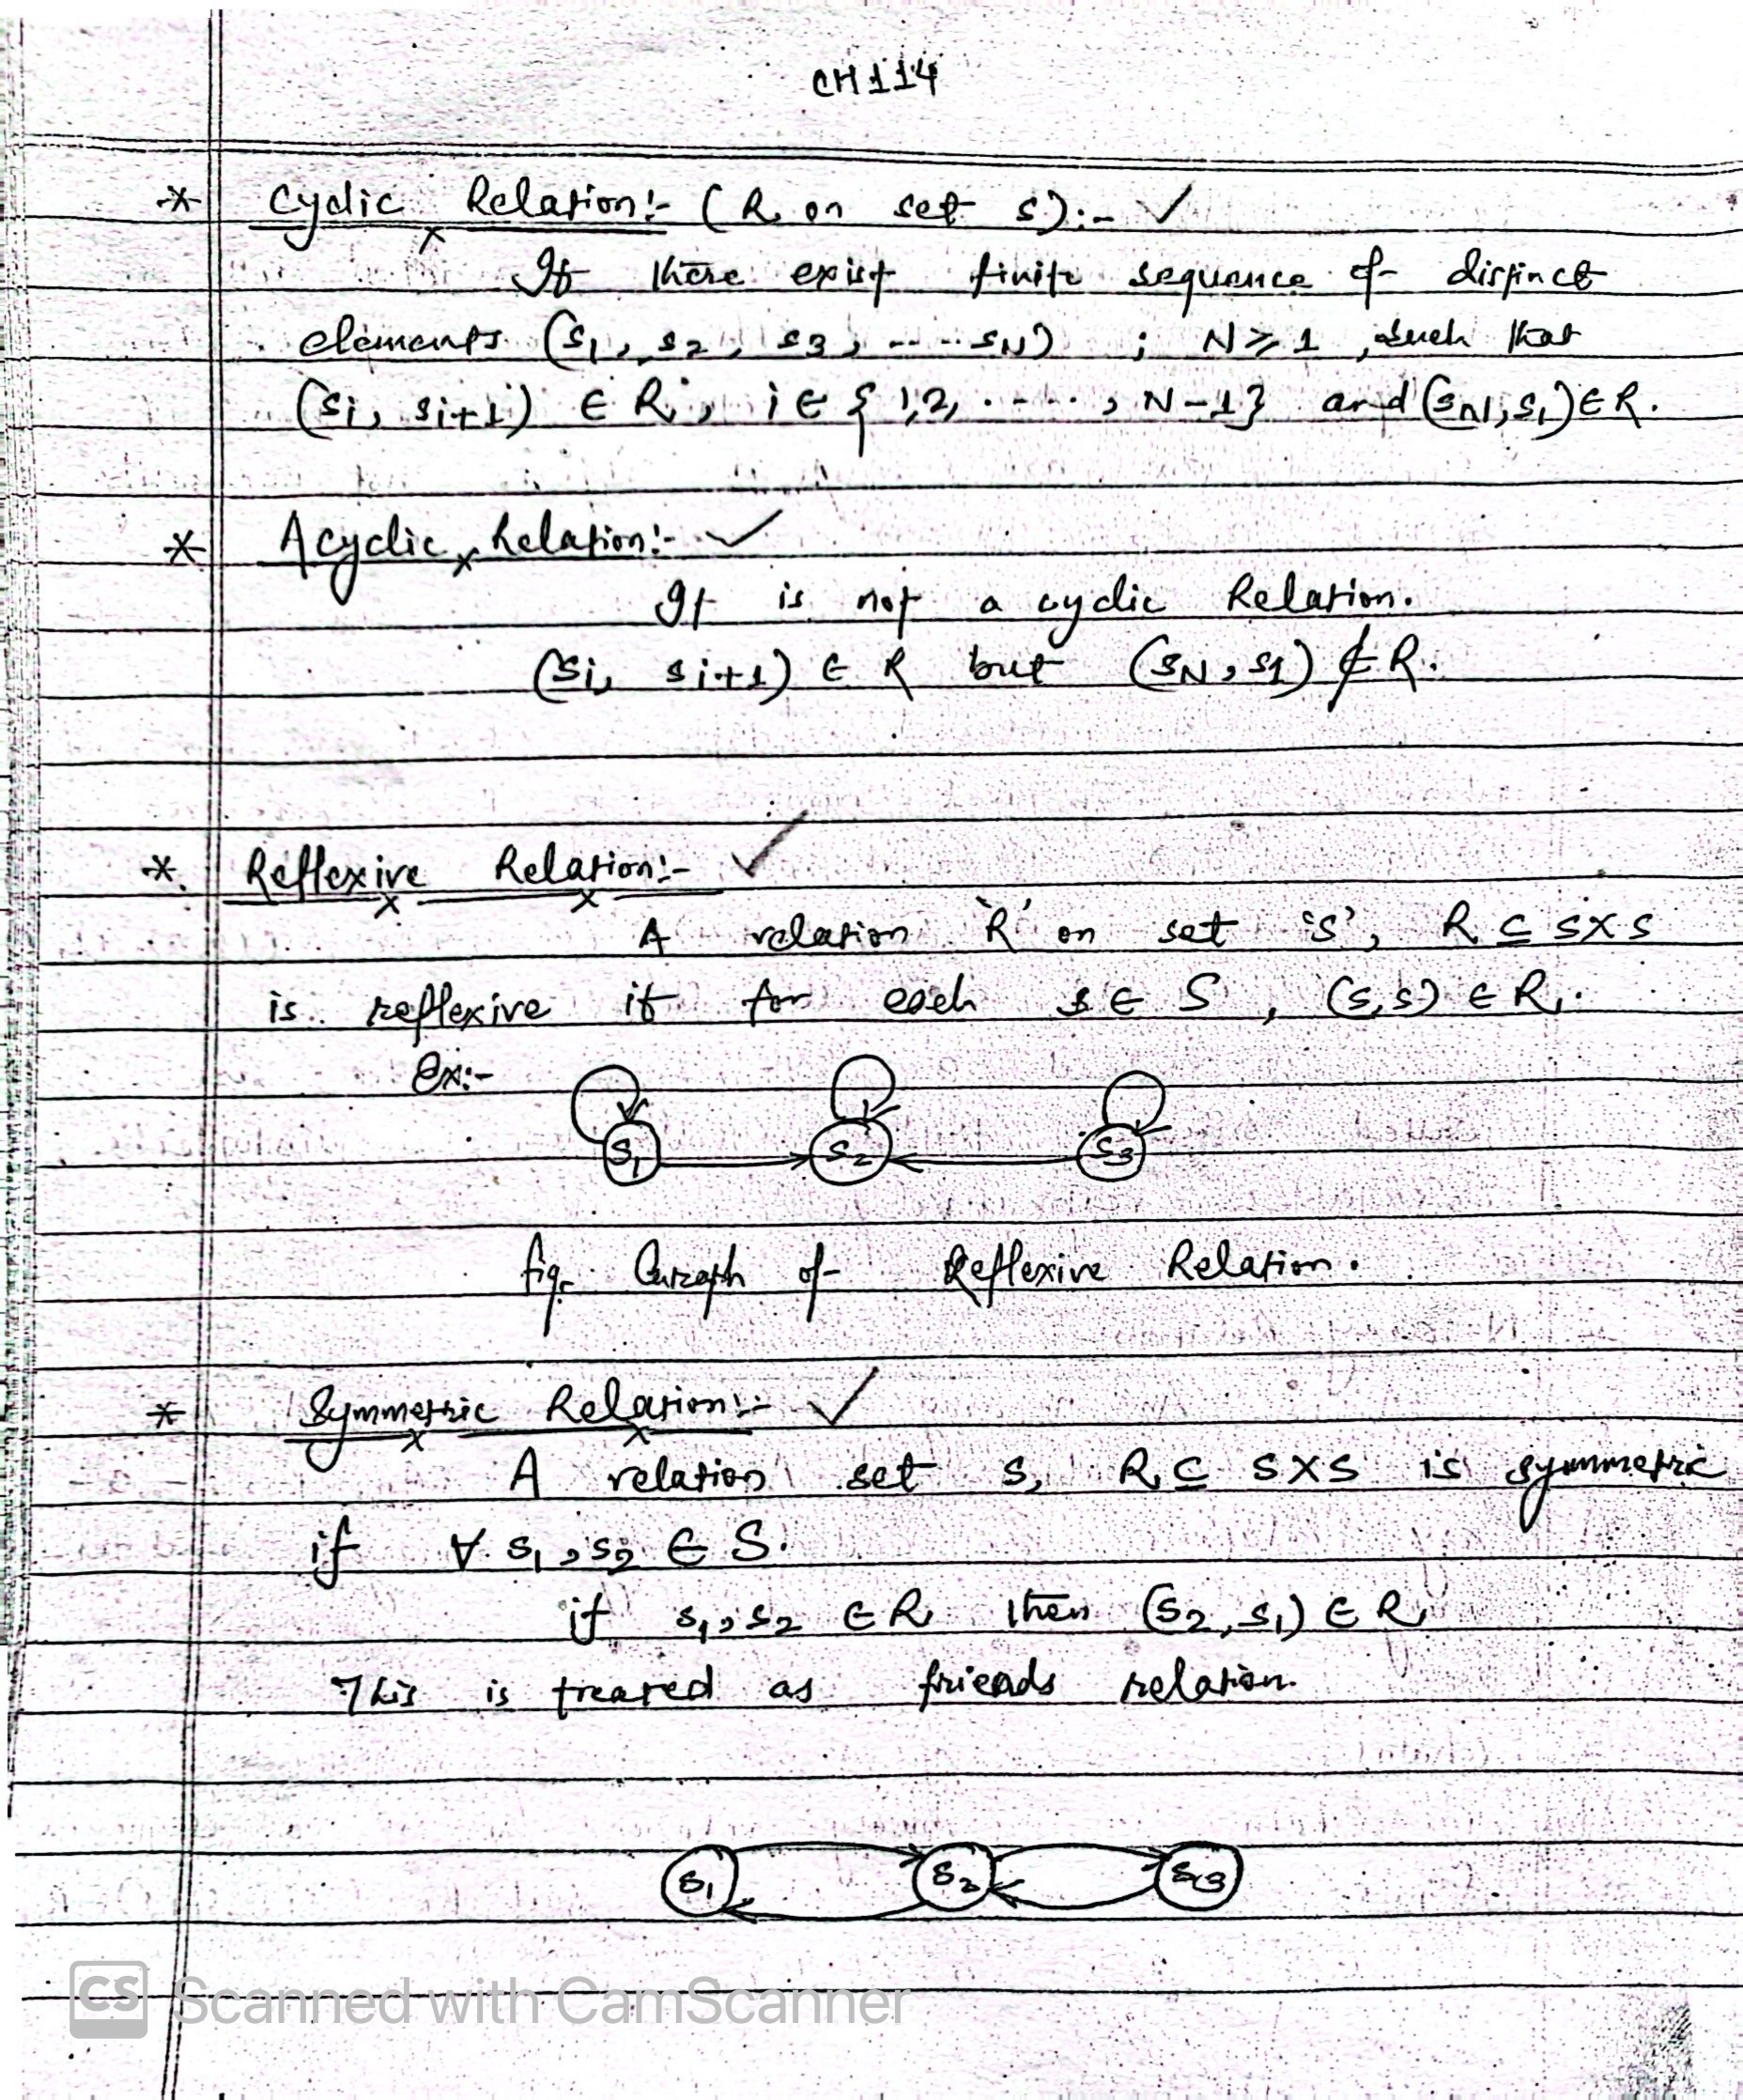 CH114
* Cyclic Relation:- (R on set S):- ✓
If there exist finite sequence of distinct
elements (S1, S2, S3, .....SN) ; N≥1, such that
(Si, Si+1) ∈ R, i ∈ {1,2, ...., N-1} and (SN, S1) ∈ R.
* Acyclic Relation:- ✓
It is not a cyclic Relation.
(Si, Si+1) ∈ R but (SN, S1) ∉ R.
* Reflexive Relation:- ✓
A relation 'R' on set 'S', R ⊆ S×S
is reflexive if for each s ∈ S, (s,s) ∈ R.
Ex:-
S1 S2 S3
fig. Graph of Reflexive Relation.
* Symmetric Relation:- ✓
A relation set S, R ⊆ S×S is symmetric
if ∀ S1, S2 ∈ S.
if S1, S2 ∈ R then (S2, S1) ∈ R
This is treated as friends relation.
S1 S2 S3
CS Scanned with CamScanner